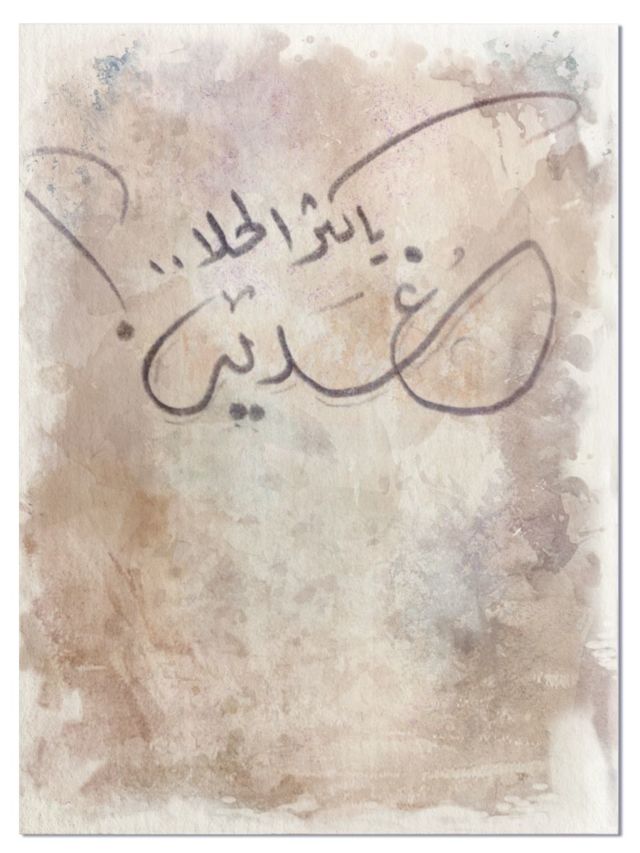 ياكثر الحلا..
غدير